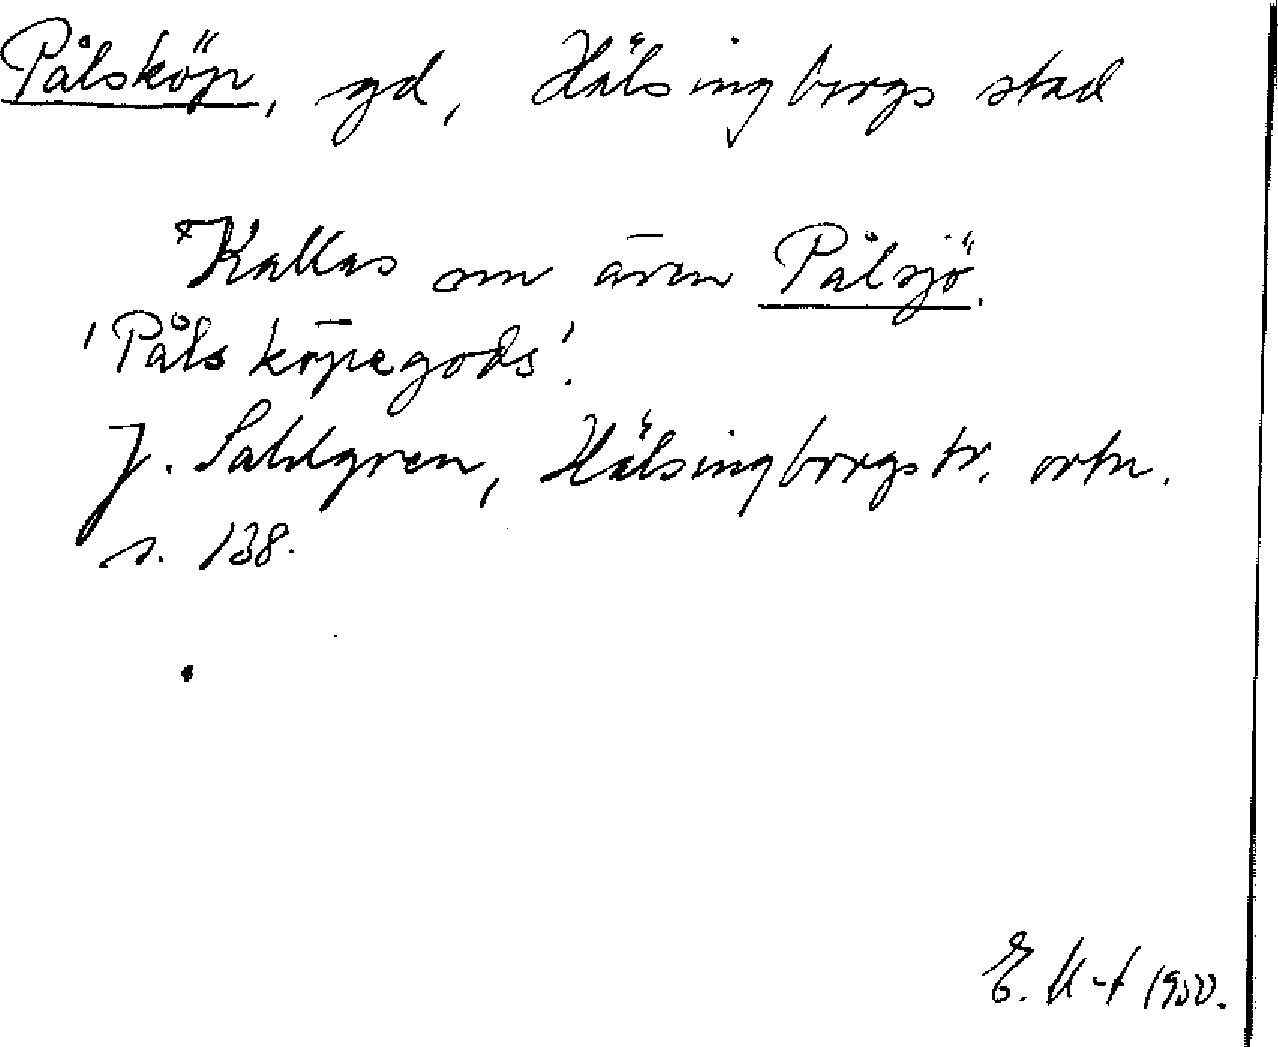 Pålsköp, gd, Hälsingborgs stad
Kallas om även Pålsjö.
'Påls köpegods'.
J. Sahlgren, Hälsingborgstr. ortn.
s. 138.
1950.